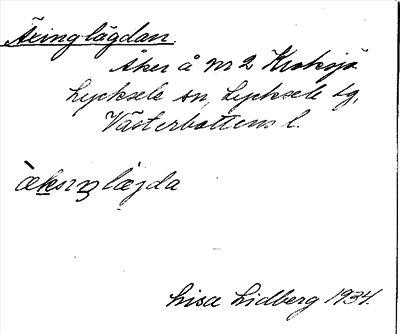 Äxinglägdan.
Åker å nr 2 Kroksjö
Lycksele sn, Lycksele lg,
Västerbottens l.
lægda
Lisa Lidberg 1934.